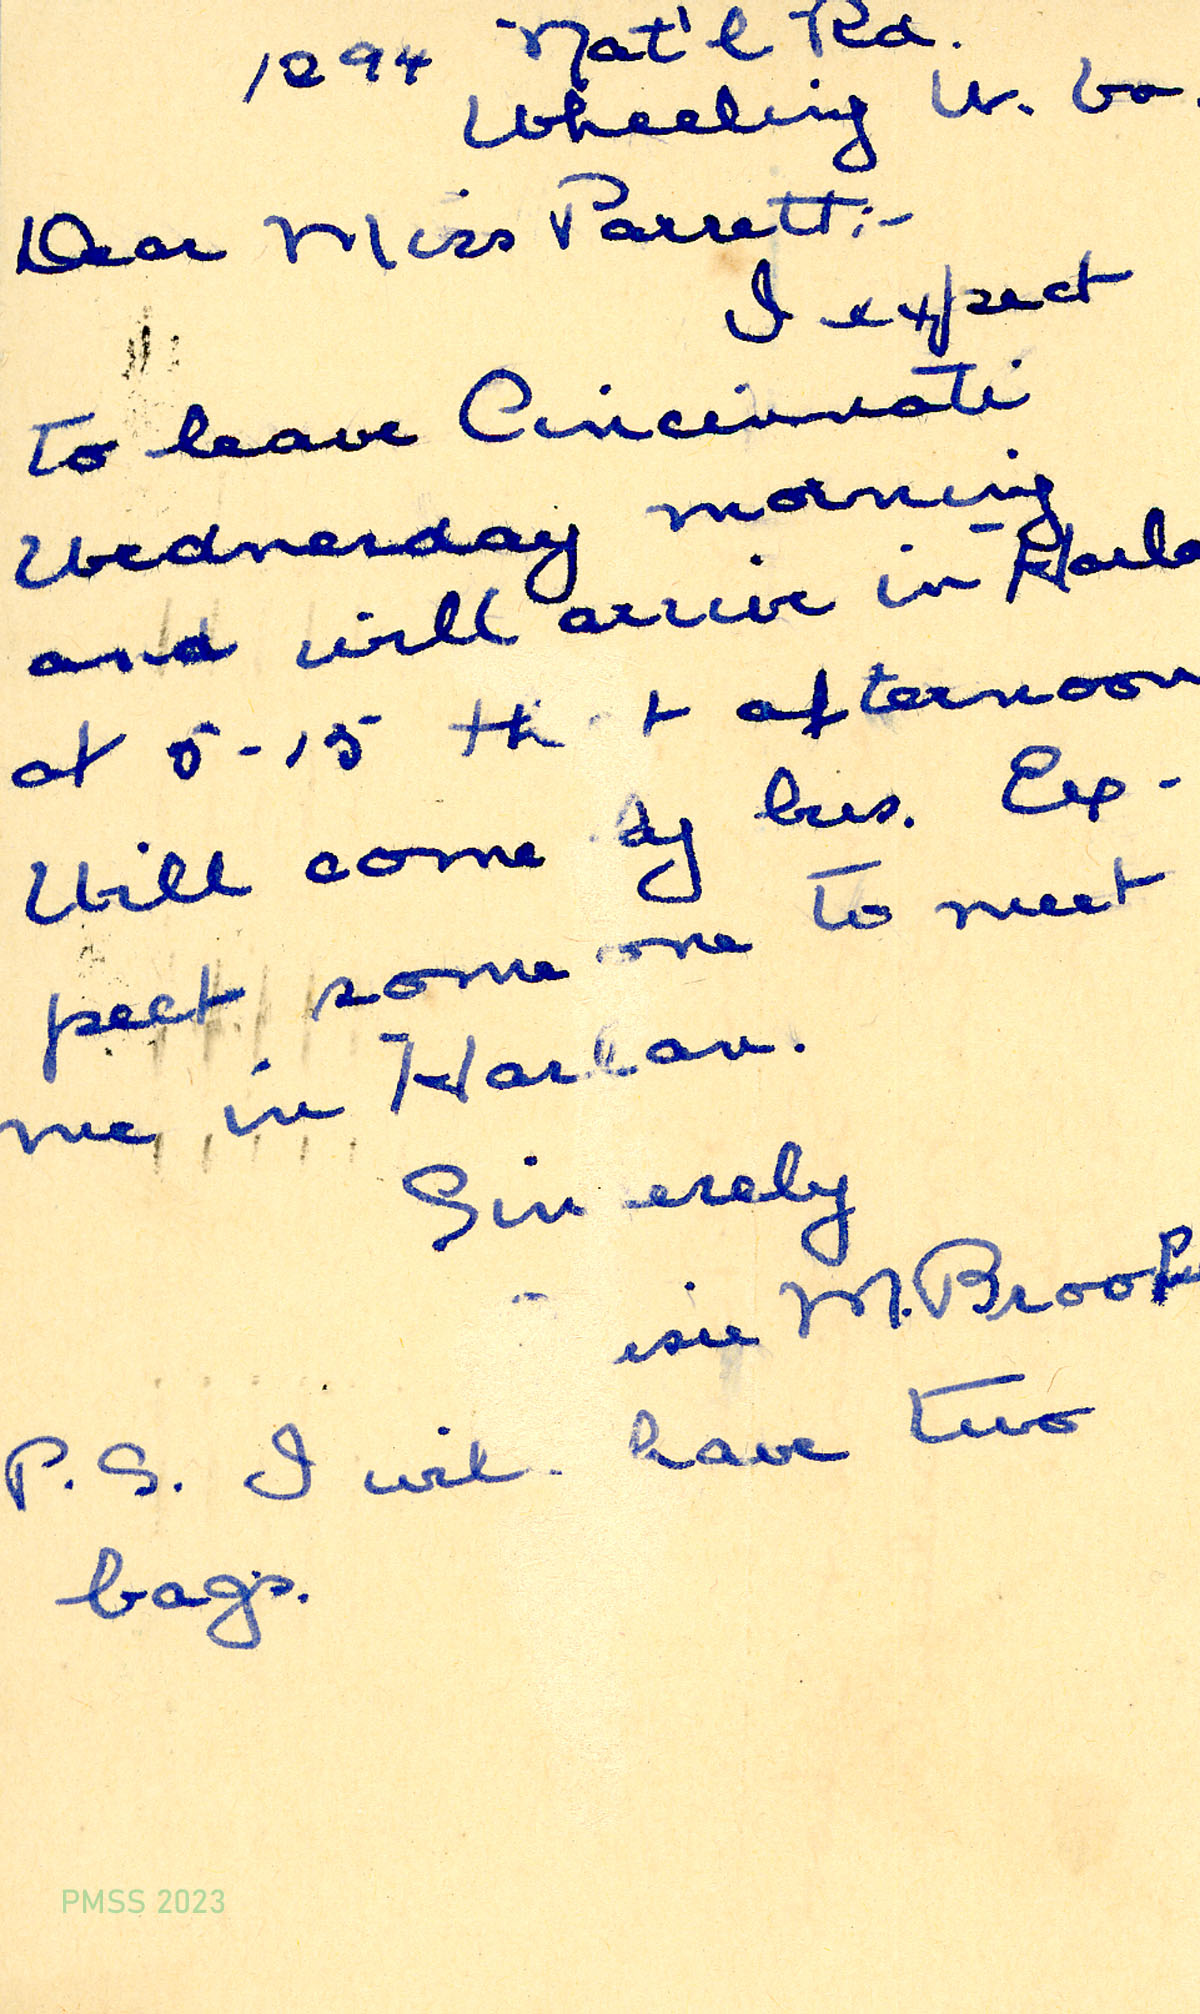 1294 Nat'l Rd.
Wheeling W. Va.
Dear Miss Parrett:-
I expect
to leave Cincinnati
Wednesday morning
and will arrive in Harla
at 5-15 th t afternoon
Will come by bus. Ex-
pect some one to meet
me in Harlan.
Sin erely
M. Brook
P.S. I wil have two
bags.
PMSS 2023